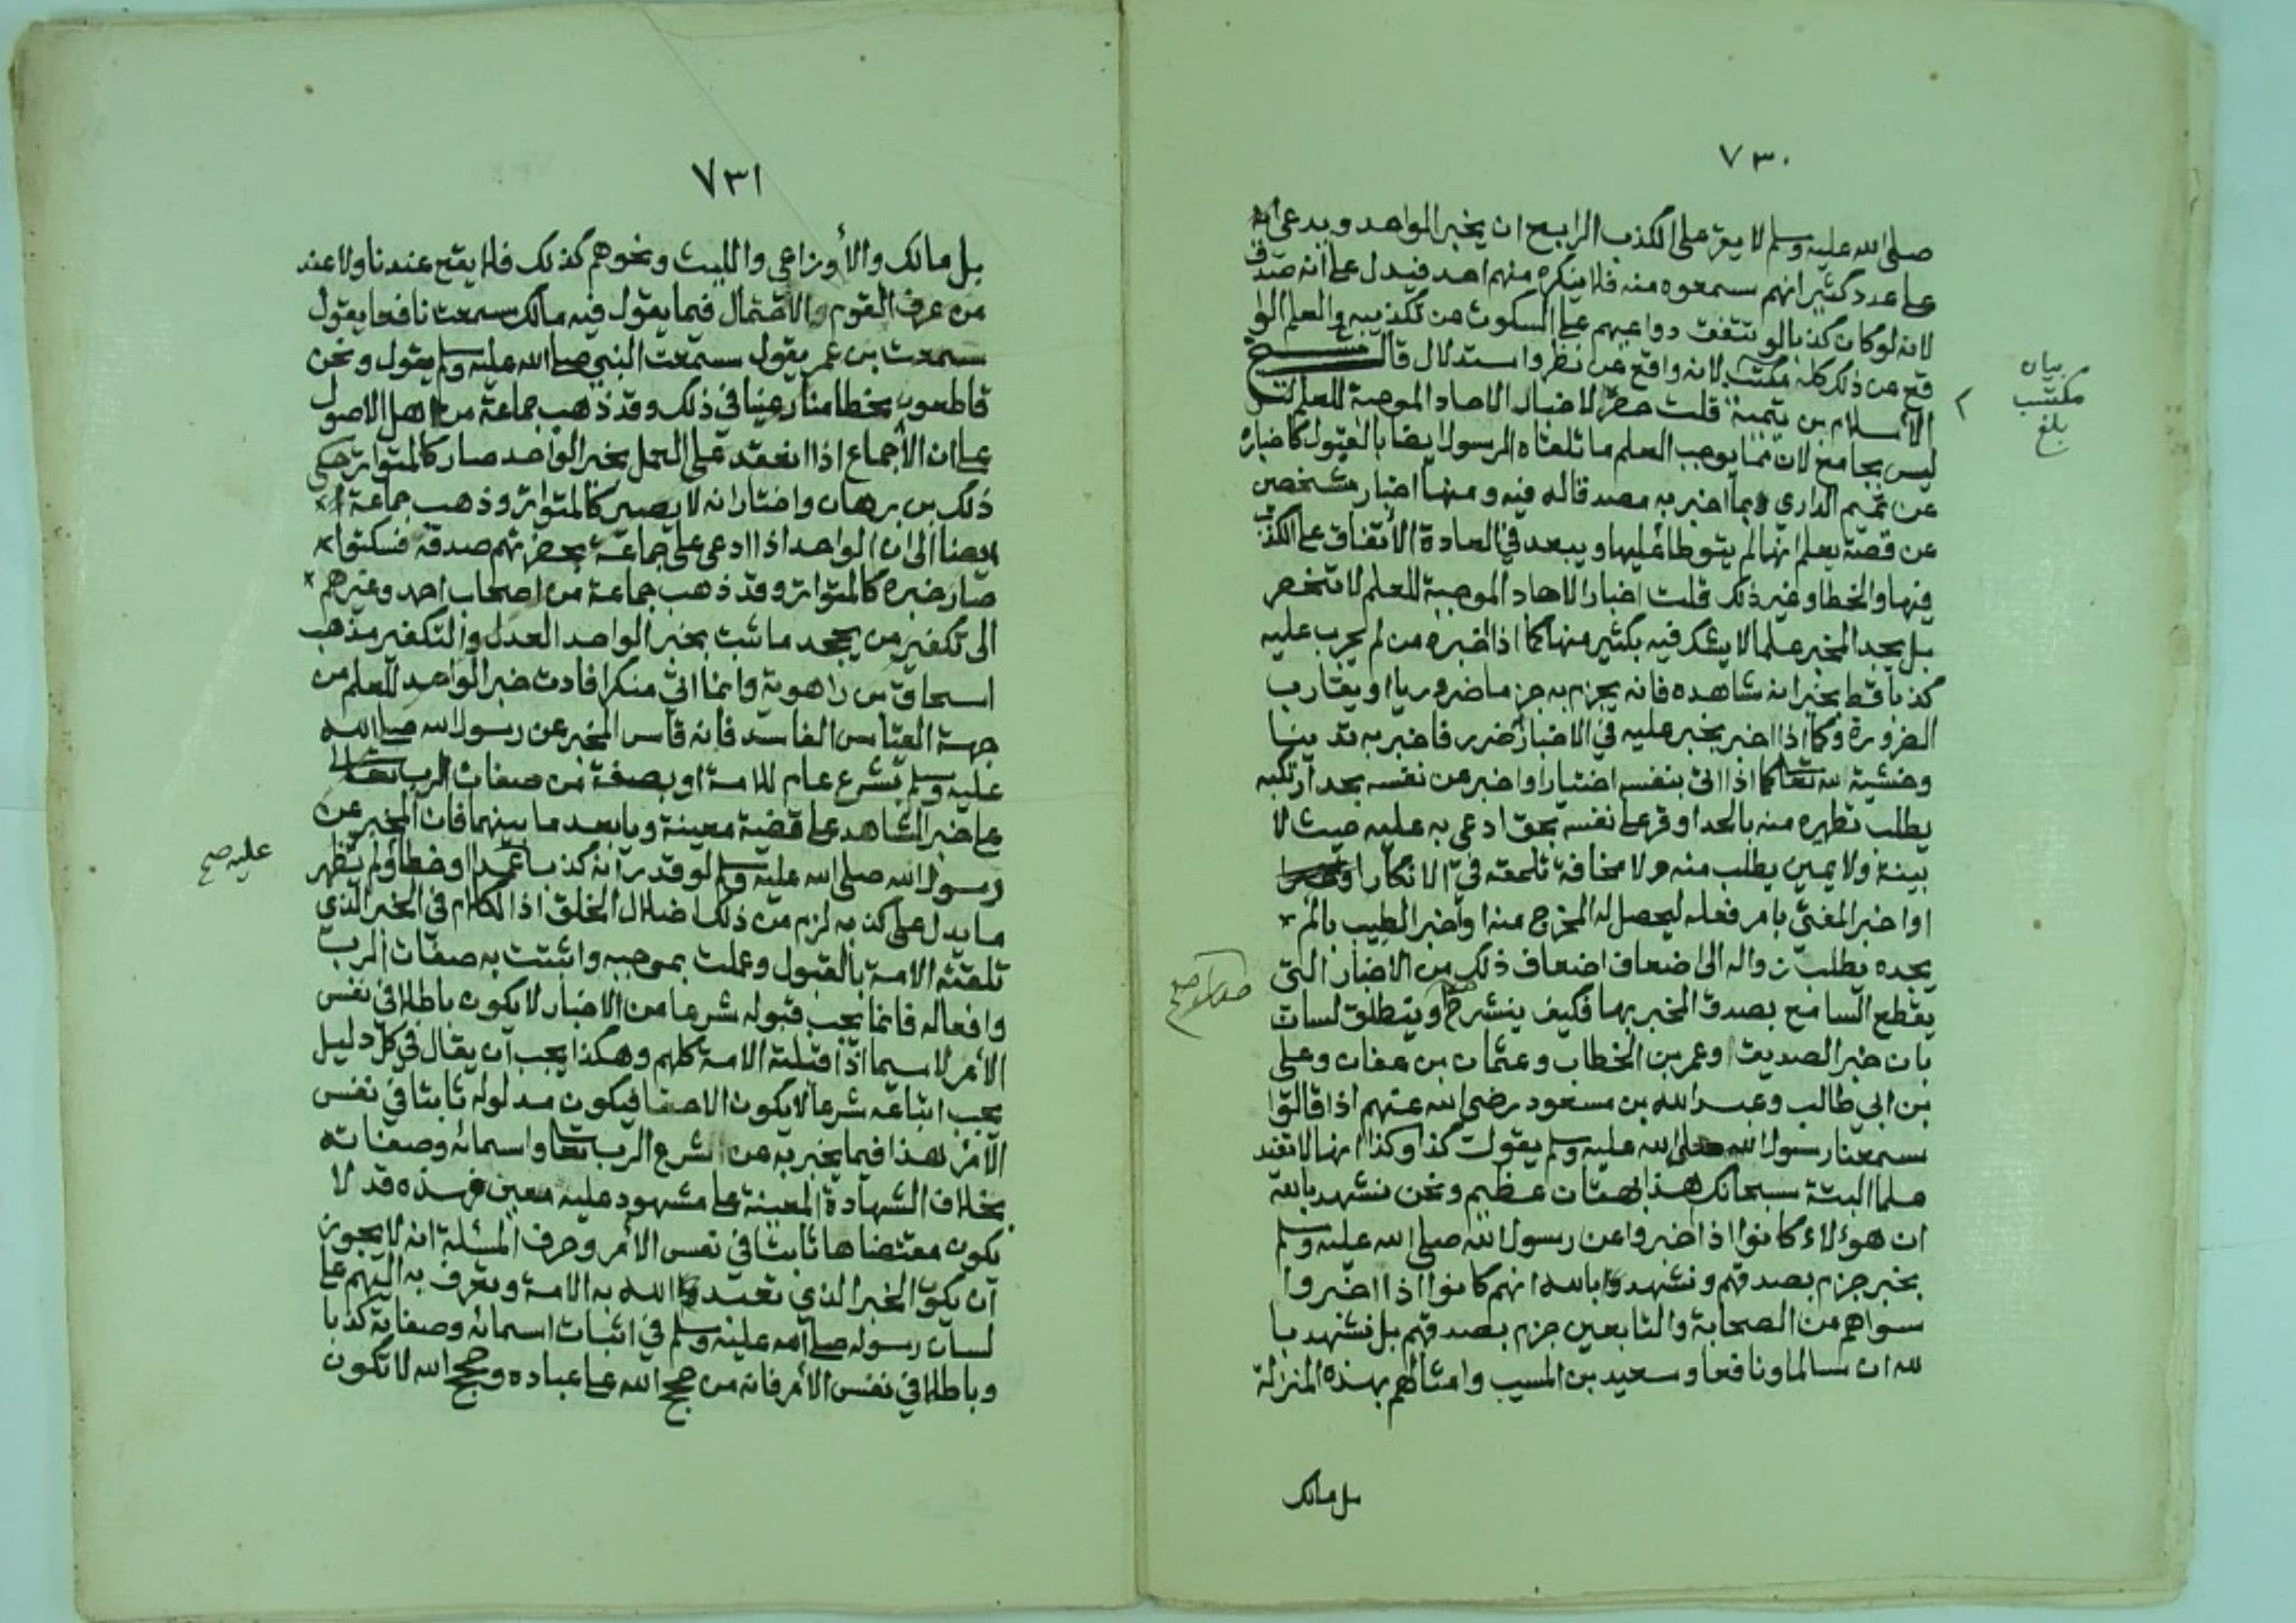 ٧٣٠
صلى الله عليه وسلم لا يقر على الكذب الرابع ان يخبر الواحد ويدعي
على عدد كثير انهم سمعوه منه فلا ينكره منهم احد فيدل على انه صدق
لانه لو كان كذبا لم تتفق دواعيهم على السكوت عن تكذيبه والعلم الوا
قع عن ذلك كله مكتسب لانه واقع عن نظر واستدلال قال شيخ
الاسلام بن تيمية قلت حصر الاخبار الاحاد الموجبة للعلم
ليس بجامع لان مما يوجب العلم ما تلقاه الرسول ايضا بالقبول كاخباره
عن تميم الداري بما اخبر به مصدقا له فيه ومنها اخبار شخصين
عن قصة يعلم انهما لم يتوطا عليها ويبعد في العادة الأتفاق على الكذب
فيها والخطا وغير ذلك قلت اخبار الاحاد الموجبة للعلم لا تنحصر
بل يجد المخبر علما لا يشك فيه بكثير منها كما اذا اخبره من لم يجرب عليه
كذبا قط بخبر انه شاهده فانه يجزم به جزما ضروريا او يقارب
الضرورة وكما اذا اخبر بخبر عليه في الاخبار ضرر فاخبر به تدينا
وخشية لله تعالى كما اذا اتى بنفسه اختيارا واخبر عن نفسه بحد ارتكبه
يطلب تطهره منه بالحد او قر على نفسه بحق ادعي به عليه حيث لا
بينة ولا يمين يطلب منه ولا مخافة تلحقه في الانكار
او اخبر المفتي بامر فعله ليحصل له المخرج منه او اخبر الطبيب بالم
يجده يطلب زواله الى اضعاف اضعاف ذلك من الاخبار التي
يقطع السامع بصدق المخبر بها فكيف ينشرح وينطلق لسان
بان خبر الصديق وعمر بن الخطاب وعثمان بن عفان وعلى
بن ابي طالب وعبد الله بن مسعود رضي الله عنهم اذا قالوا
سمعنا رسول الله صلى الله عليه وسلم يقول كذا وكذا انها لا تفيد
علما البتة سبحانك هذا بهتان عظيم ونحن نشهد بالله
ان هؤلاء كانوا اذا اخبروا عن رسول الله صلى الله عليه وسلم
بخبر جزم بصدقهم ونشهد بالله انهم كانوا اذا اخبروا
سواهم من الصحابة والتابعين جزم بصدقهم بل نشهد با
لله ان سالما ونافعا وسعيد بن المسيب وامثالهم بهذه المنزلة
بل مالك
بيان
مكتسب
بلغ
٧٣١
بل مالك والأوزاعي والليث ونحوهم كذلك فلا يقع عندنا ولا عند
من عرف القوم والاحتمال فيما يقول فيه مالك سمعت نافعا يقول
سمعت بن عمر يقول سمعت النبي صلى الله عليه وسلم يقول ونحن
قاطعون بخطا منازعينا في ذلك وقد ذهب جماعة من اهل الاصول
على ان الأجماع اذا انعقد على العمل بخبر الواحد صار كالمتواتر حكى
ذلك بن برهان واختار انه لا يصير كالمتواتر وذهب جماعة
ايضا الى ان الواحد اذا ادعى على جماعة بحضرتهم صدقه فسكتوا
صار خبره كالمتواتر وقد ذهب جماعة من اصحاب احمد وغيرهم
الى تكفير من يجحد ما ثبت بخبر الواحد العدل والتكفير مذهب
اسحاق بن راهويه وانما اتى منكر افادت خبر الواحد للعلم من
جهة القياس الفاسد فانه قاس المخبر عن رسول الله صلى الله
عليه وسلم بشرع عام للامة او بصفة من صفات الرب تعالى
على خبر الشاهد على قضية معينة ويا بعد ما بينهما فان المخبر عن
رسول الله صلى الله عليه وسلم لو قدر انه كذب عمدا او خطا ولم يظهر
ما يدل على كذبه لزم من ذلك اضلال الخلق اذ الكلام في الخبر الذي
تلقته الامة بالقبول وعملت بموجبه واثبتت به صفات الرب
وافعاله فانما يجب قبوله شرعا من الاخبار لا يكون باطلا في نفس
الأمر لا سيما اذا قبلته الامة كلهم وهكذا يجب ان يقال في كل دليل
يجب اتباعه شرعا لا يكون الا حقا فيكون مدلوله ثابتا في نفس
الأمر هذا فيما يخبر به عن شرع الرب تعا واسمائه وصفاته
بخلاف الشهادة المعينة على مشهود عليه معين فهذه قد لا
يكون مقتضاها ثابتا في نفس الأمر وحرف المسئلة انه لا يجوز
ان يكون الخبر الذي تعبد الله به الامة وتعرف به اليهم على
لسان رسوله صلى الله عليه وسلم في اثبات اسمائه وصفاته كذبا
وباطلا في نفس الأمر فانه من حجج الله على عباده وحجج الله لا تكون
عليه صح